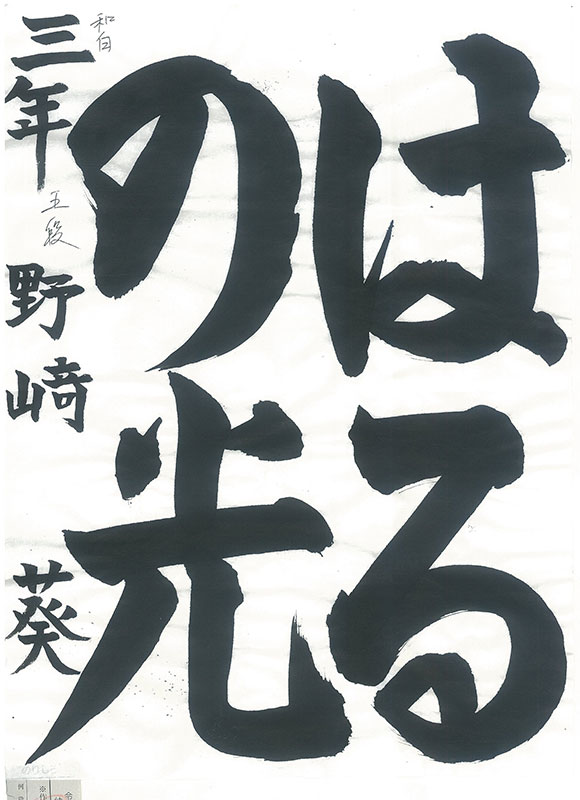 はる
の光
三年 野﨑 葵
和白
五段